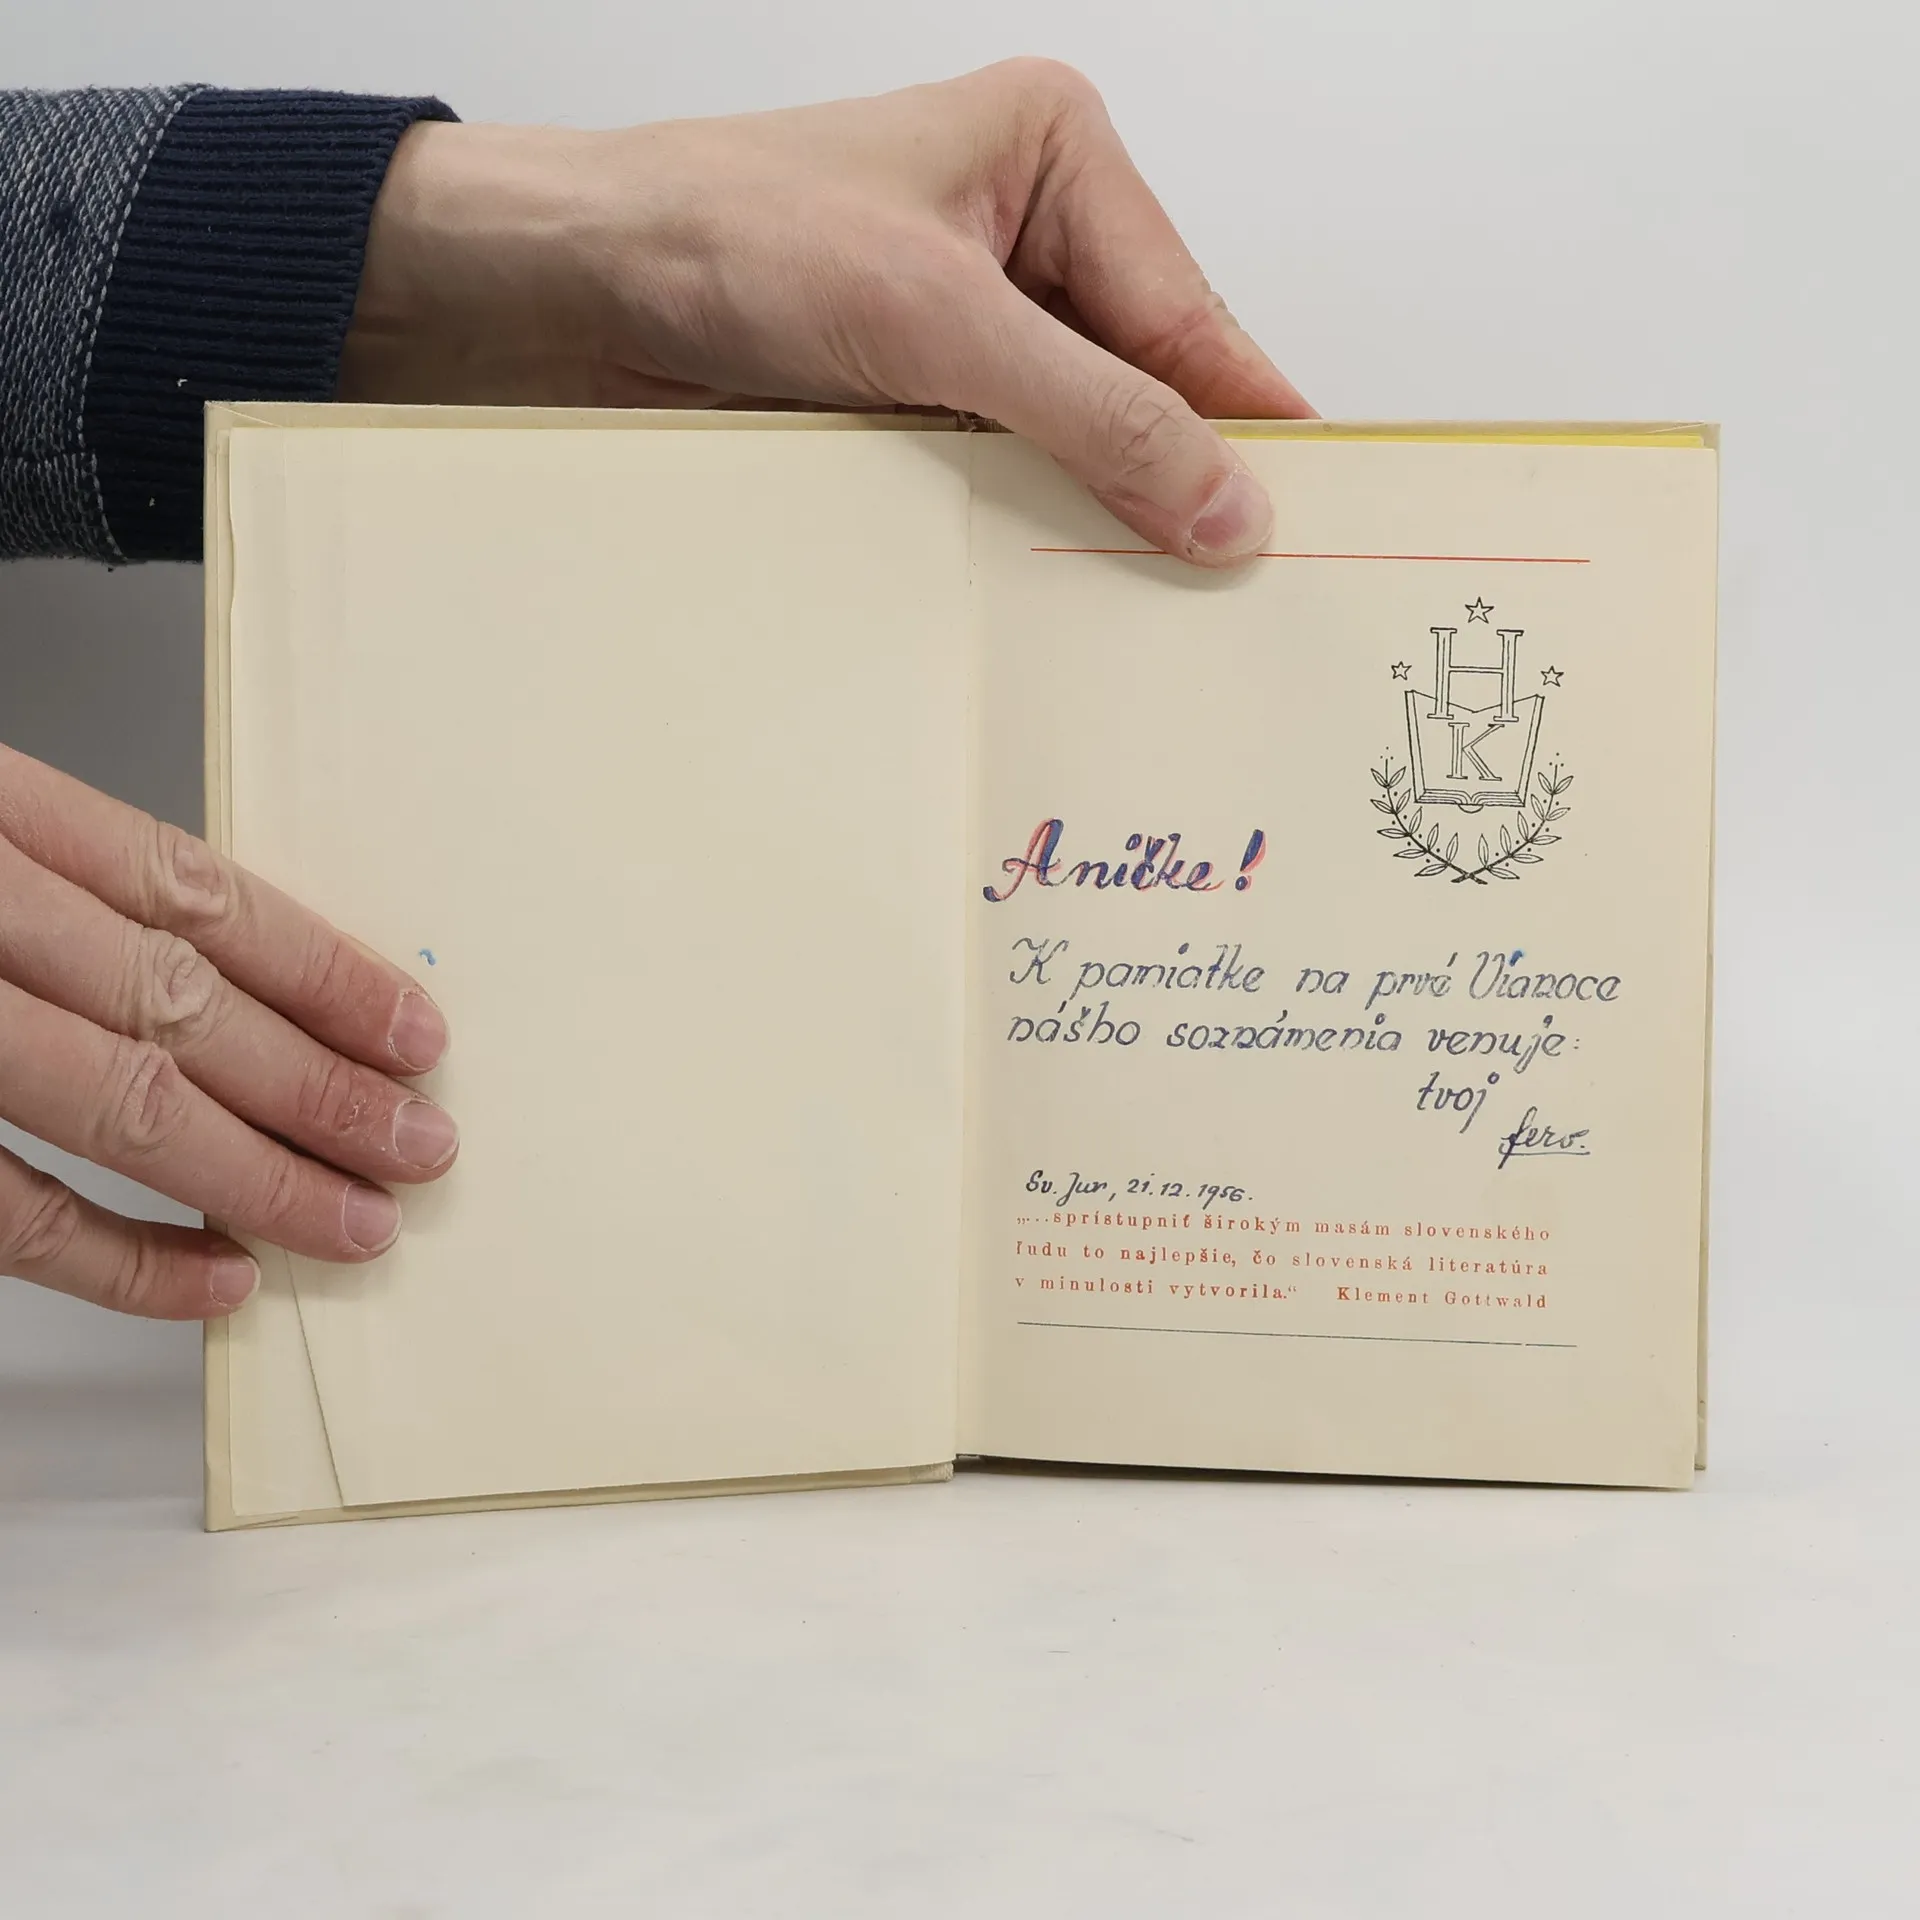 H
K
Aničke!
K pamiatke na prvé Vianoce
nášho soznámenia venuje:
tvoj
fero.
Sv. Jur, 21.12.1956.
„...sprístupniť širokým masám slovenského
ľudu to najlepšie, čo slovenská literatúra
v minulosti vytvorila.“ Klement Gottwald